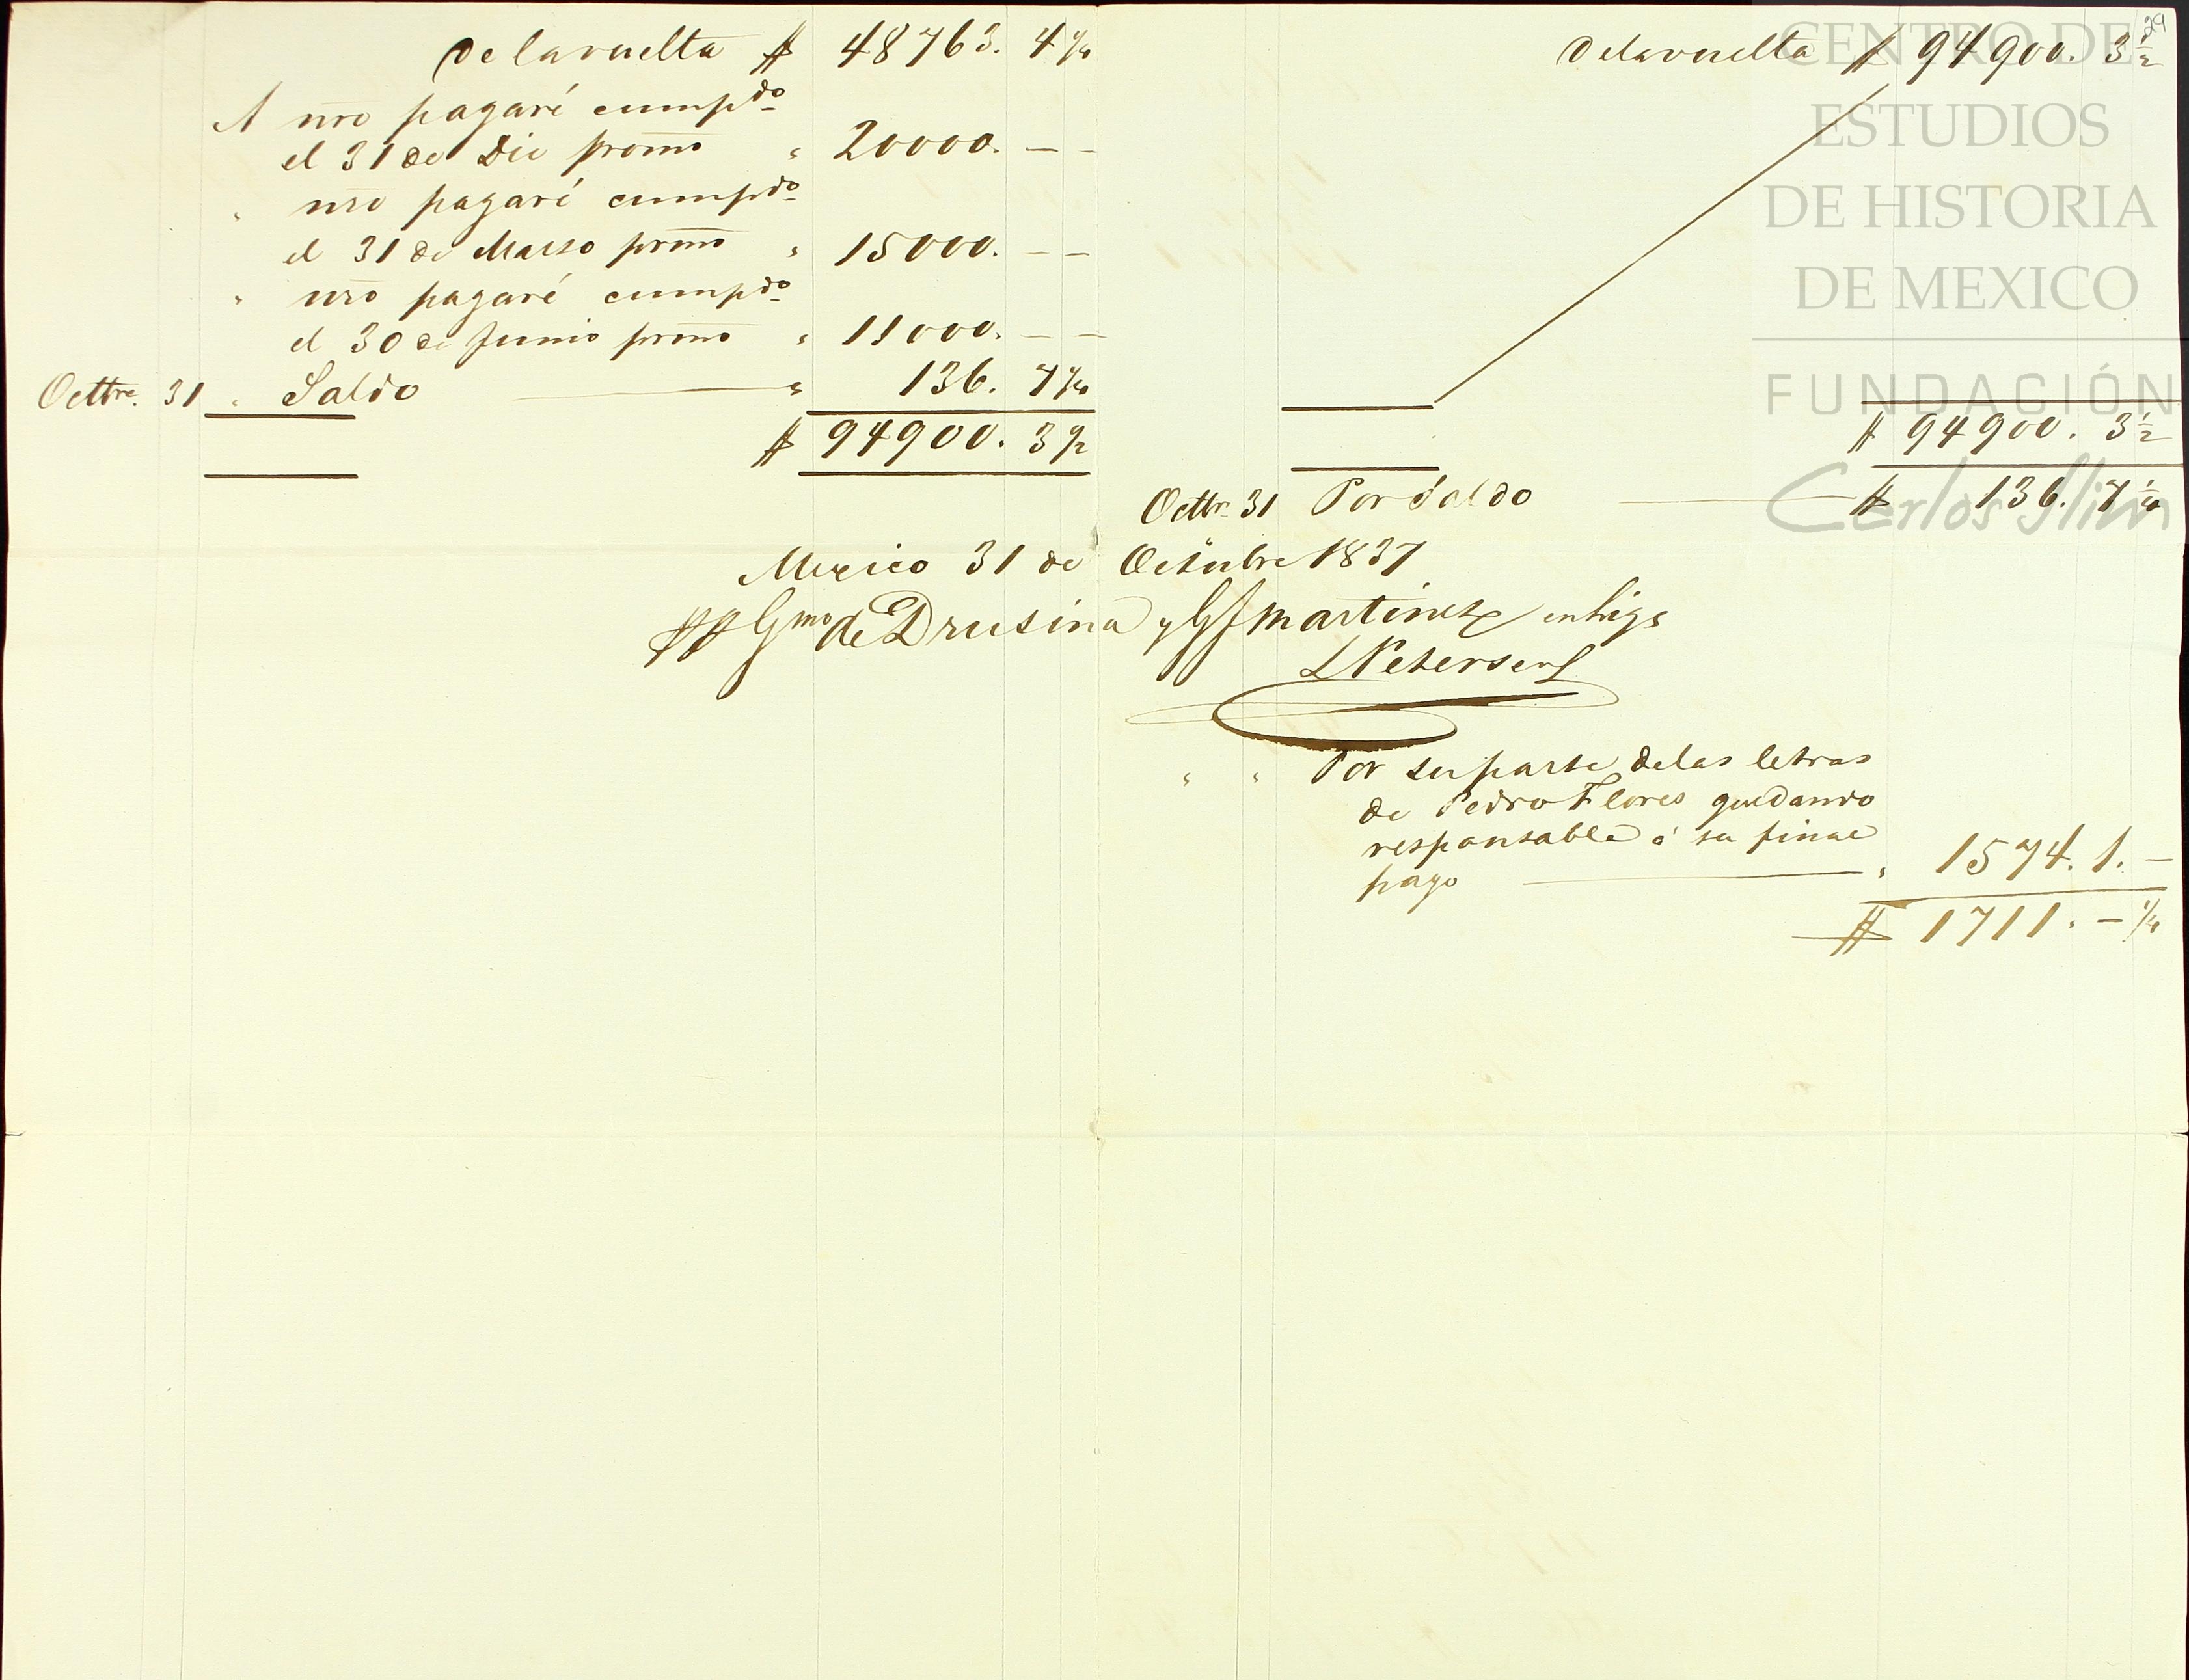 de la vuelta $ 48763. 4 1/4
A nro pagaré cumpdo
el 31 de Dic promo " 20000. — —
" nro pagaré cumpdo
el 31 de Marso prmo " 15000. — —
" nro pagaré cumpdo
el 30 de Junio prmo " 11000. — —
Octtre. 31 " Saldo " 136. 7 1/4
$ 94900. 3 1/2
29
de la vuelta $ 94900. 3 1/2
$ 94900. 3 1/2
Octtr 31 Por Saldo $ 136. 7 1/4
Mexico 31 de Octubre 1837
pp Gmo de Drusina y G J Martinez
L Petersen
" " Por su parte de las letras
de Pedro Flores quedando
responsable á su final
pago " 1574. 1. —
$ 1711. — 1/4
CENTRO DE
ESTUDIOS
DE HISTORIA
DE MEXICO
FUNDACIÓN
Carlos Slim